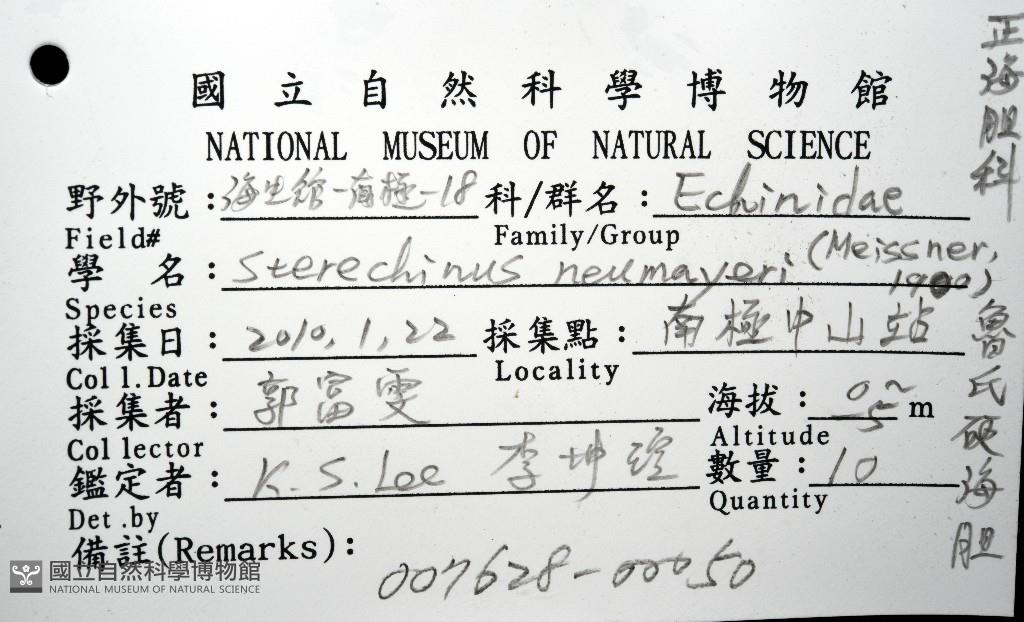 國立自然科學博物館
NATIONAL MUSEUM OF NATURAL SCIENCE
野外號：海生館-南極-18 科/群名：Echinidae
Field# Family/Group
學 名：Sterechinus neumayeri (Meissner, 1900)
Species
採集日：2010,1,22 採集點：南極中山站
Coll.Date Locality
採集者：郭富雯 海拔：0~-5 m
Collector Altitude
鑑定者：K.S.Lee 李坤瑄 數量：10
Det.by Quantity
備註(Remarks)：
007628-00050
正海胆科
魯氏硬海胆
國立自然科學博物館
NATIONAL MUSEUM OF NATURAL SCIENCE